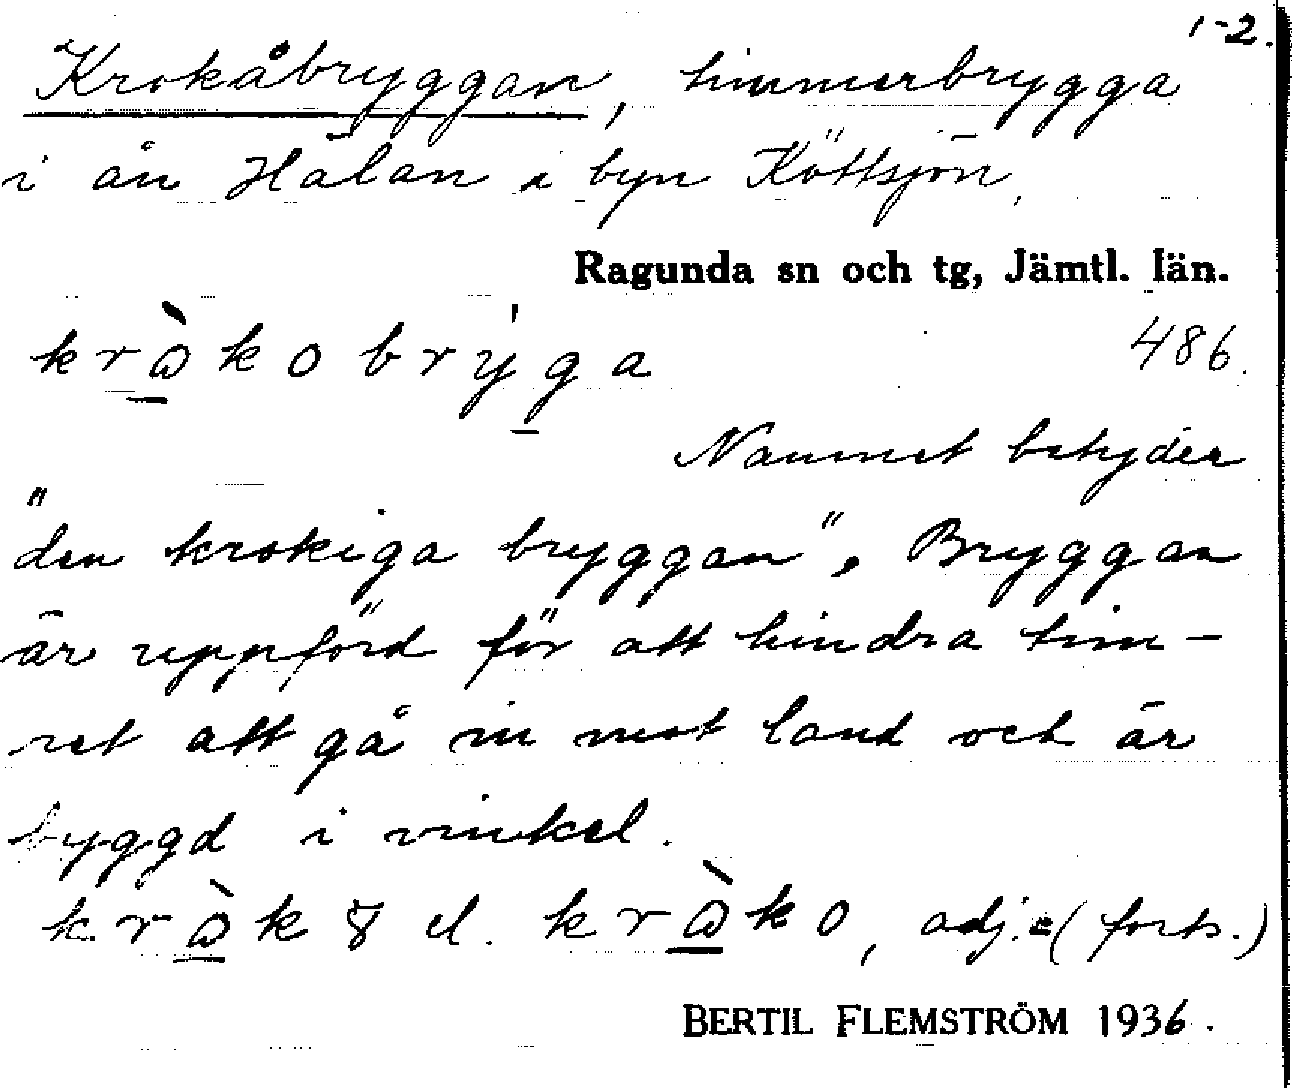 1-2.
Krokåbryggan, timmerbrygga
i ån Hålan i byn Köttsjön,
Ragunda sn och tg, Jämtl. län.
kròkobrýga 486.
Namnet betyder
"den krokiga bryggan". Bryggan
är uppförd för att hindra tim-
ret att gå in mot land och är
byggd i vinkel.
el. kròko, adj. (forts.)
BERTIL FLEMSTRÖM 1936.